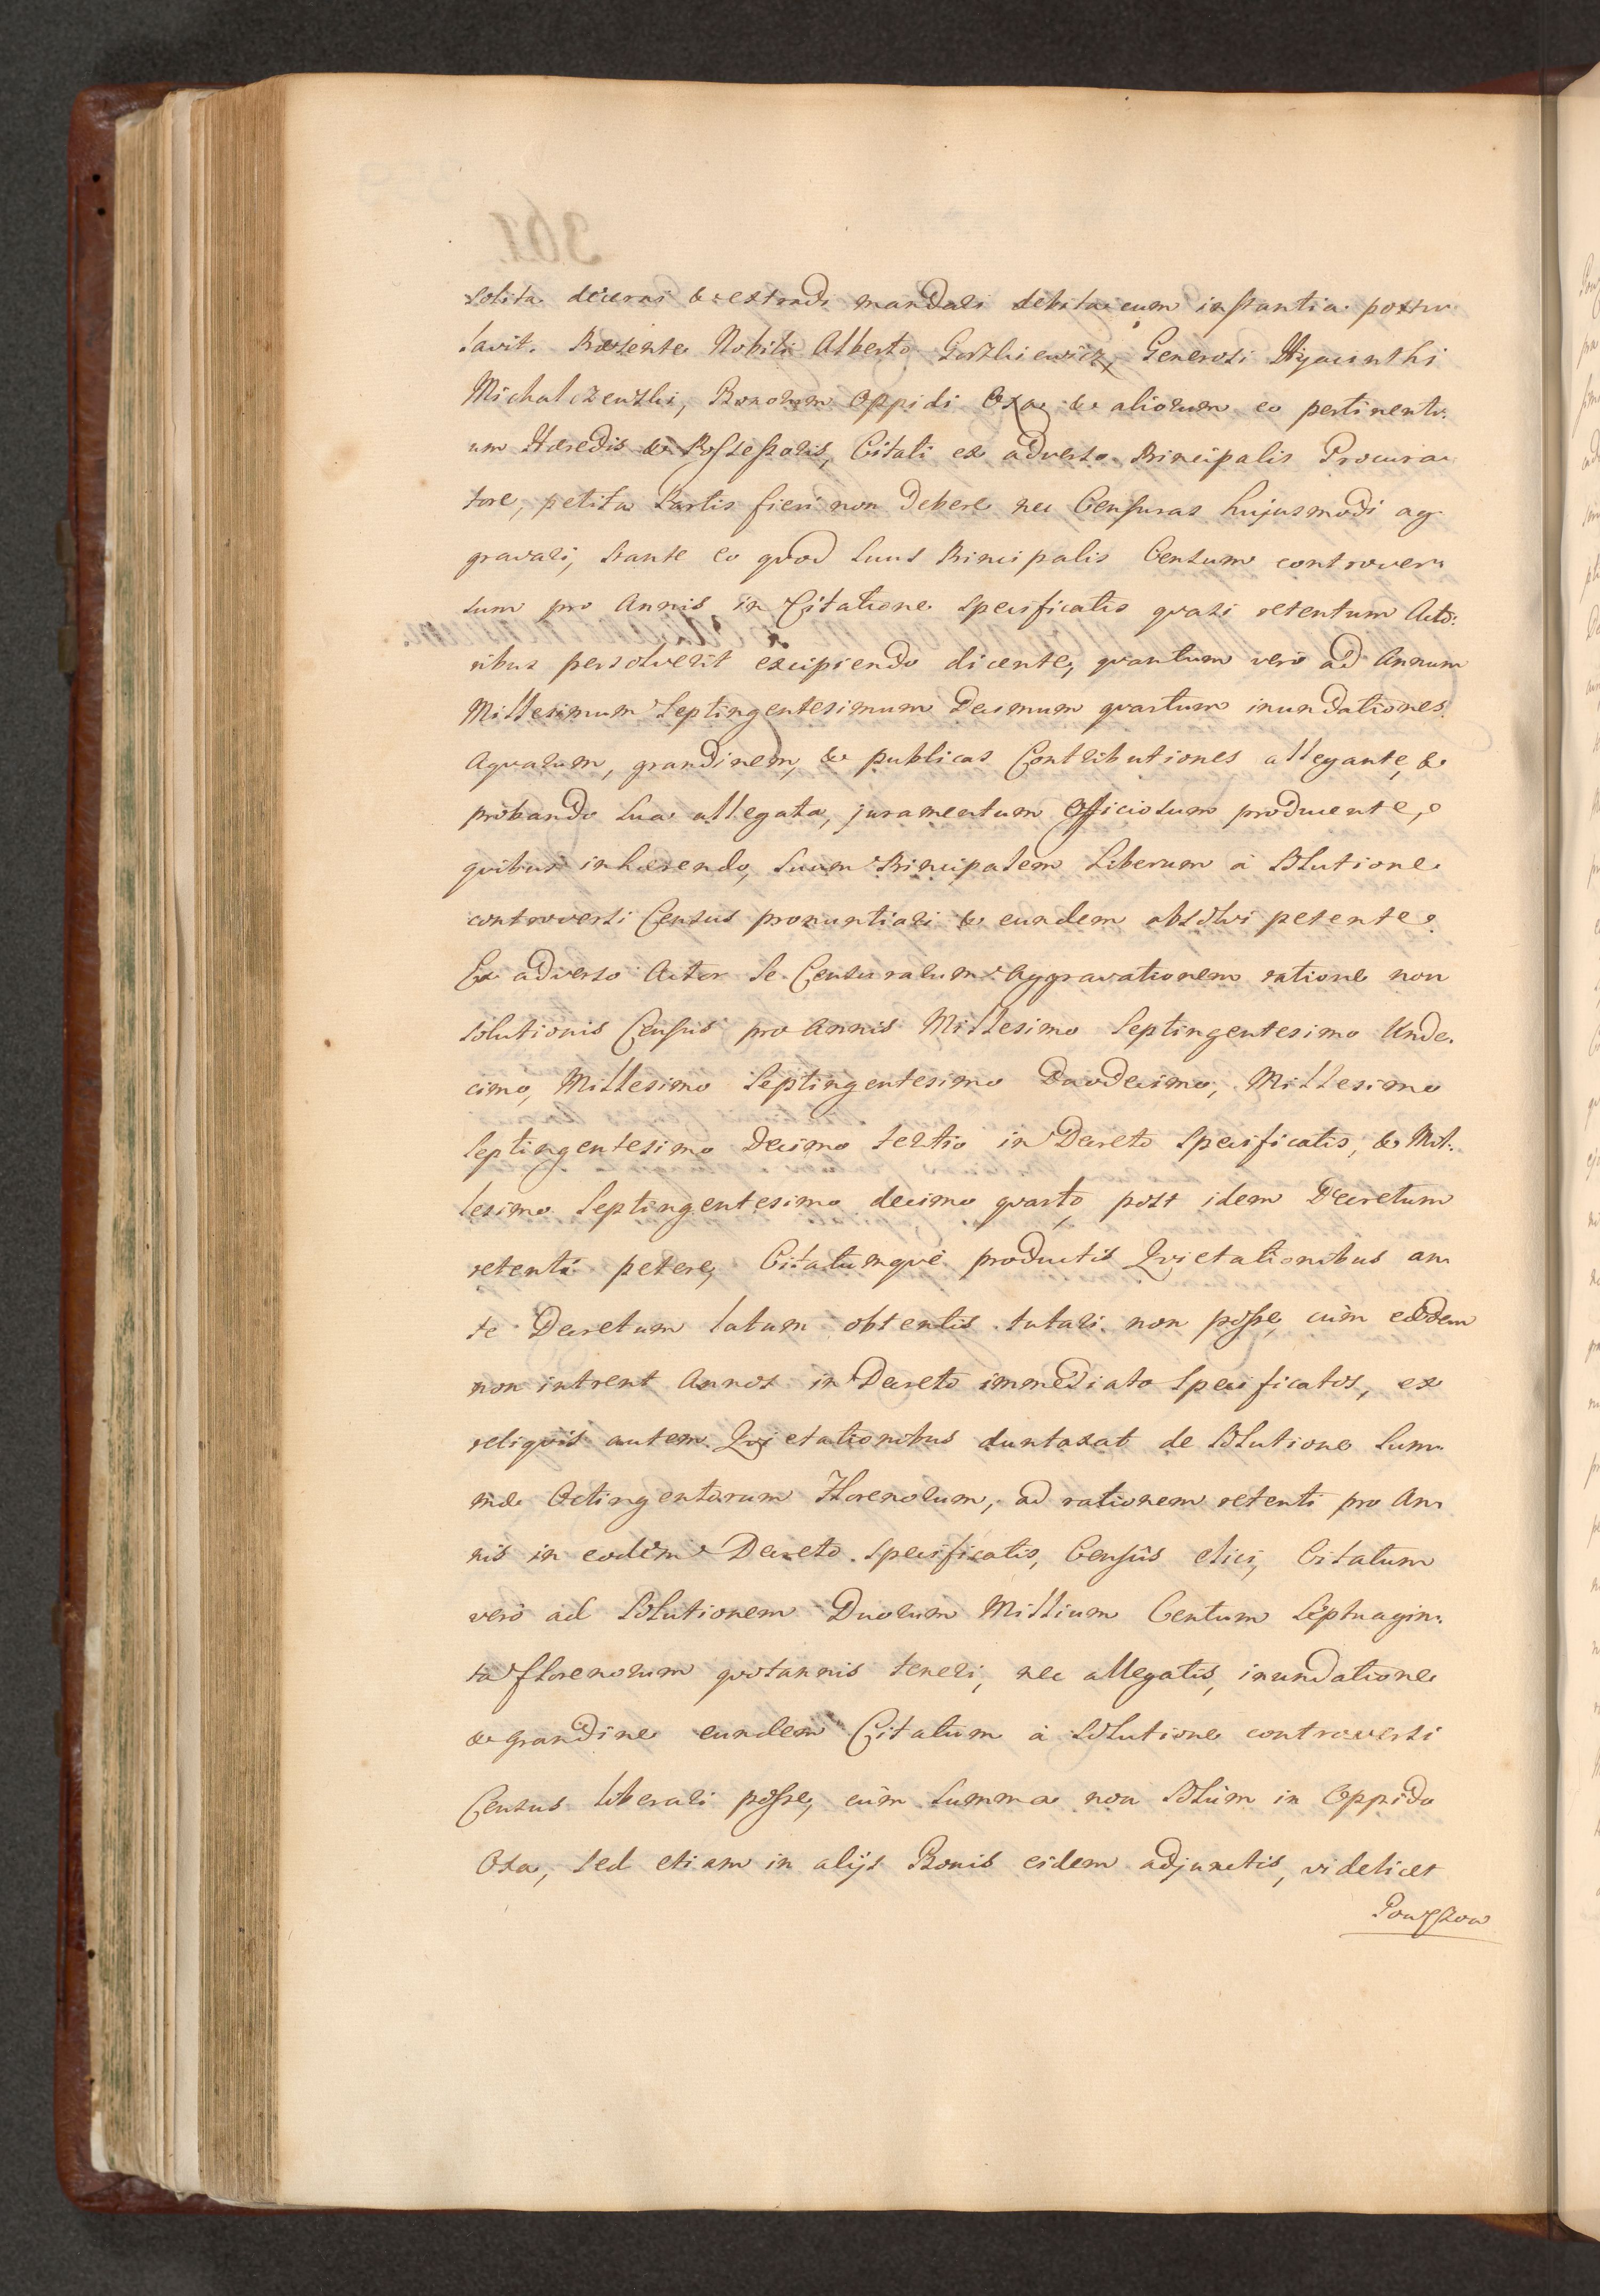 solita decerni & extradi mandari debita cum instantia postu-
lavit. Præsente Nobili Alberto Gorzkiewicz, Generosi Hyacinthi
Michalczewski, Bonorum Oppidi Oxa & aliorum eo pertinenti-
um Hæredis & Possessoris, Citati ex adverso Principalis Procura-
tore, petita Partis fieri non debere nec Censuras hujusmodi ag-
gravari, stante eo quod suus Principalis Censum controver-
sum pro Annis in Citatione specificatis quasi retentum Acto-
ribus persolverit excipiendo dicente, quantum verò ad Annum
Millesimum Septingentesimum Decimum quartum inundationes
Aquarum, grandinem, & publicas Contributiones allegante, &
probando sua allegata, juramentum Officiosum producente,
quibus inhærendo, suum Principalem liberum à solutione
controversi Census pronuntiari & eundem absolvi petente.
Ex adverso Actor se Censurarum Aggravationem ratione non
solutionis Censûs pro Annis Millesimo Septingentesimo Unde-
cimo, Millesimo Septingentesimo Duodecimo, Millesimo
Septingentesimo Decimo tertio in Decreto specificatis, & Mil-
lesimo Septingentesimo decimo quarto, post idem Decretum
retenti petere, Citatumque productis Quietationibus an-
te Decretum latum obtentis tutari non posse, cùm eædem
non intrent Annos in Decreto immediato specificatos, ex
reliquis autem Quietationibus duntaxat de solutione Sum-
mæ Octingentorum Florenorum, ad rationem retenti pro An-
nis in eodem Decreto specificatis, Censûs elici, Citatum
verò ad solutionem Duorum Millium Centum Septuagin-
ta florenorum quotannis teneri, nec allegatis, inundatione
& grandine eundem Citatum à solutione controversi
Census liberari posse, cùm Summa non solùm in Oppido
Oxa, sed etiam in alijs Bonis eidem adjunctis, videlicet